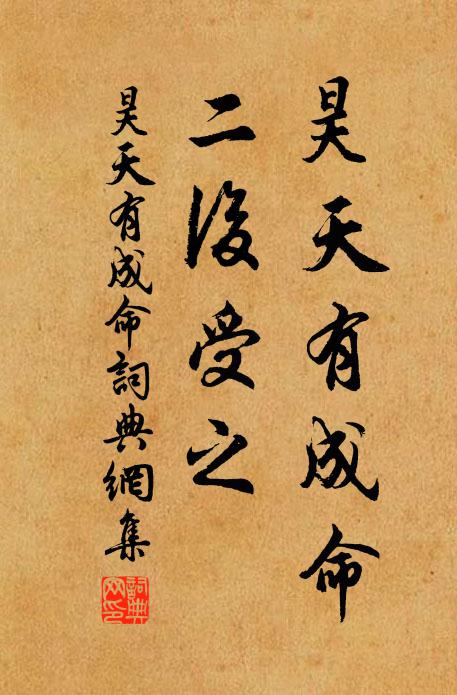 昊天有成命
二後受之
昊天有成命詞典網集
詞典
网印